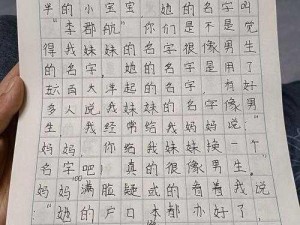 半的小宝宝 她的名字叫
"李郡航" 你们是不是觉
得我妹妹的名字很像男生
的名字,她的名字是用了
云南大 起的名字,有好
多人说我妹妹的名字像男
生,我经常给我妈妈说:"
妈妈,你给我妹妹换一个
名字吧!真的很像男生。"
妈妈满脸疑或的看着我说
"她的户口本都办好了,